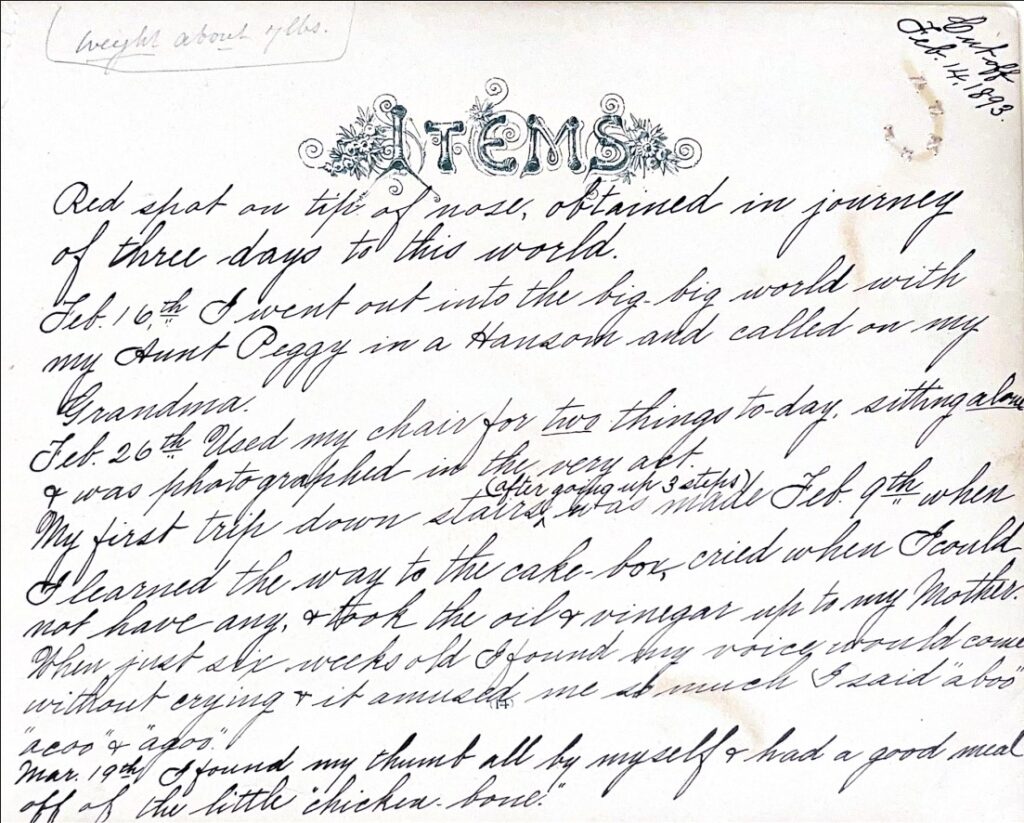 Weight about 7 lbs.
Cut off
Feb. 14. 1893.
ITEMS
Red spot on tip of nose, obtained in journey
of three days to this world.
Feb. 16th I went out into the big-big world with
my Aunt Peggy in a Hansom and called on my
Grandma.
Feb. 26th Used my chair for two things to-day. sitting alone
& was photographed in the very act.
(after going up 3 steps)
My first trip down stairs ^ was made Feb. 9th when
I learned the way to the cake-box, cried when I could
not have any, & took the oil & vinegar up to my Mother.
When just six weeks old I found my voice would come
without crying & it amused me so much I said "aboo"
(14)
"acoo" & "agoo".
Mar. 19th I found my thumb all by myself & had a good meal
off of the little "chicken-bone."